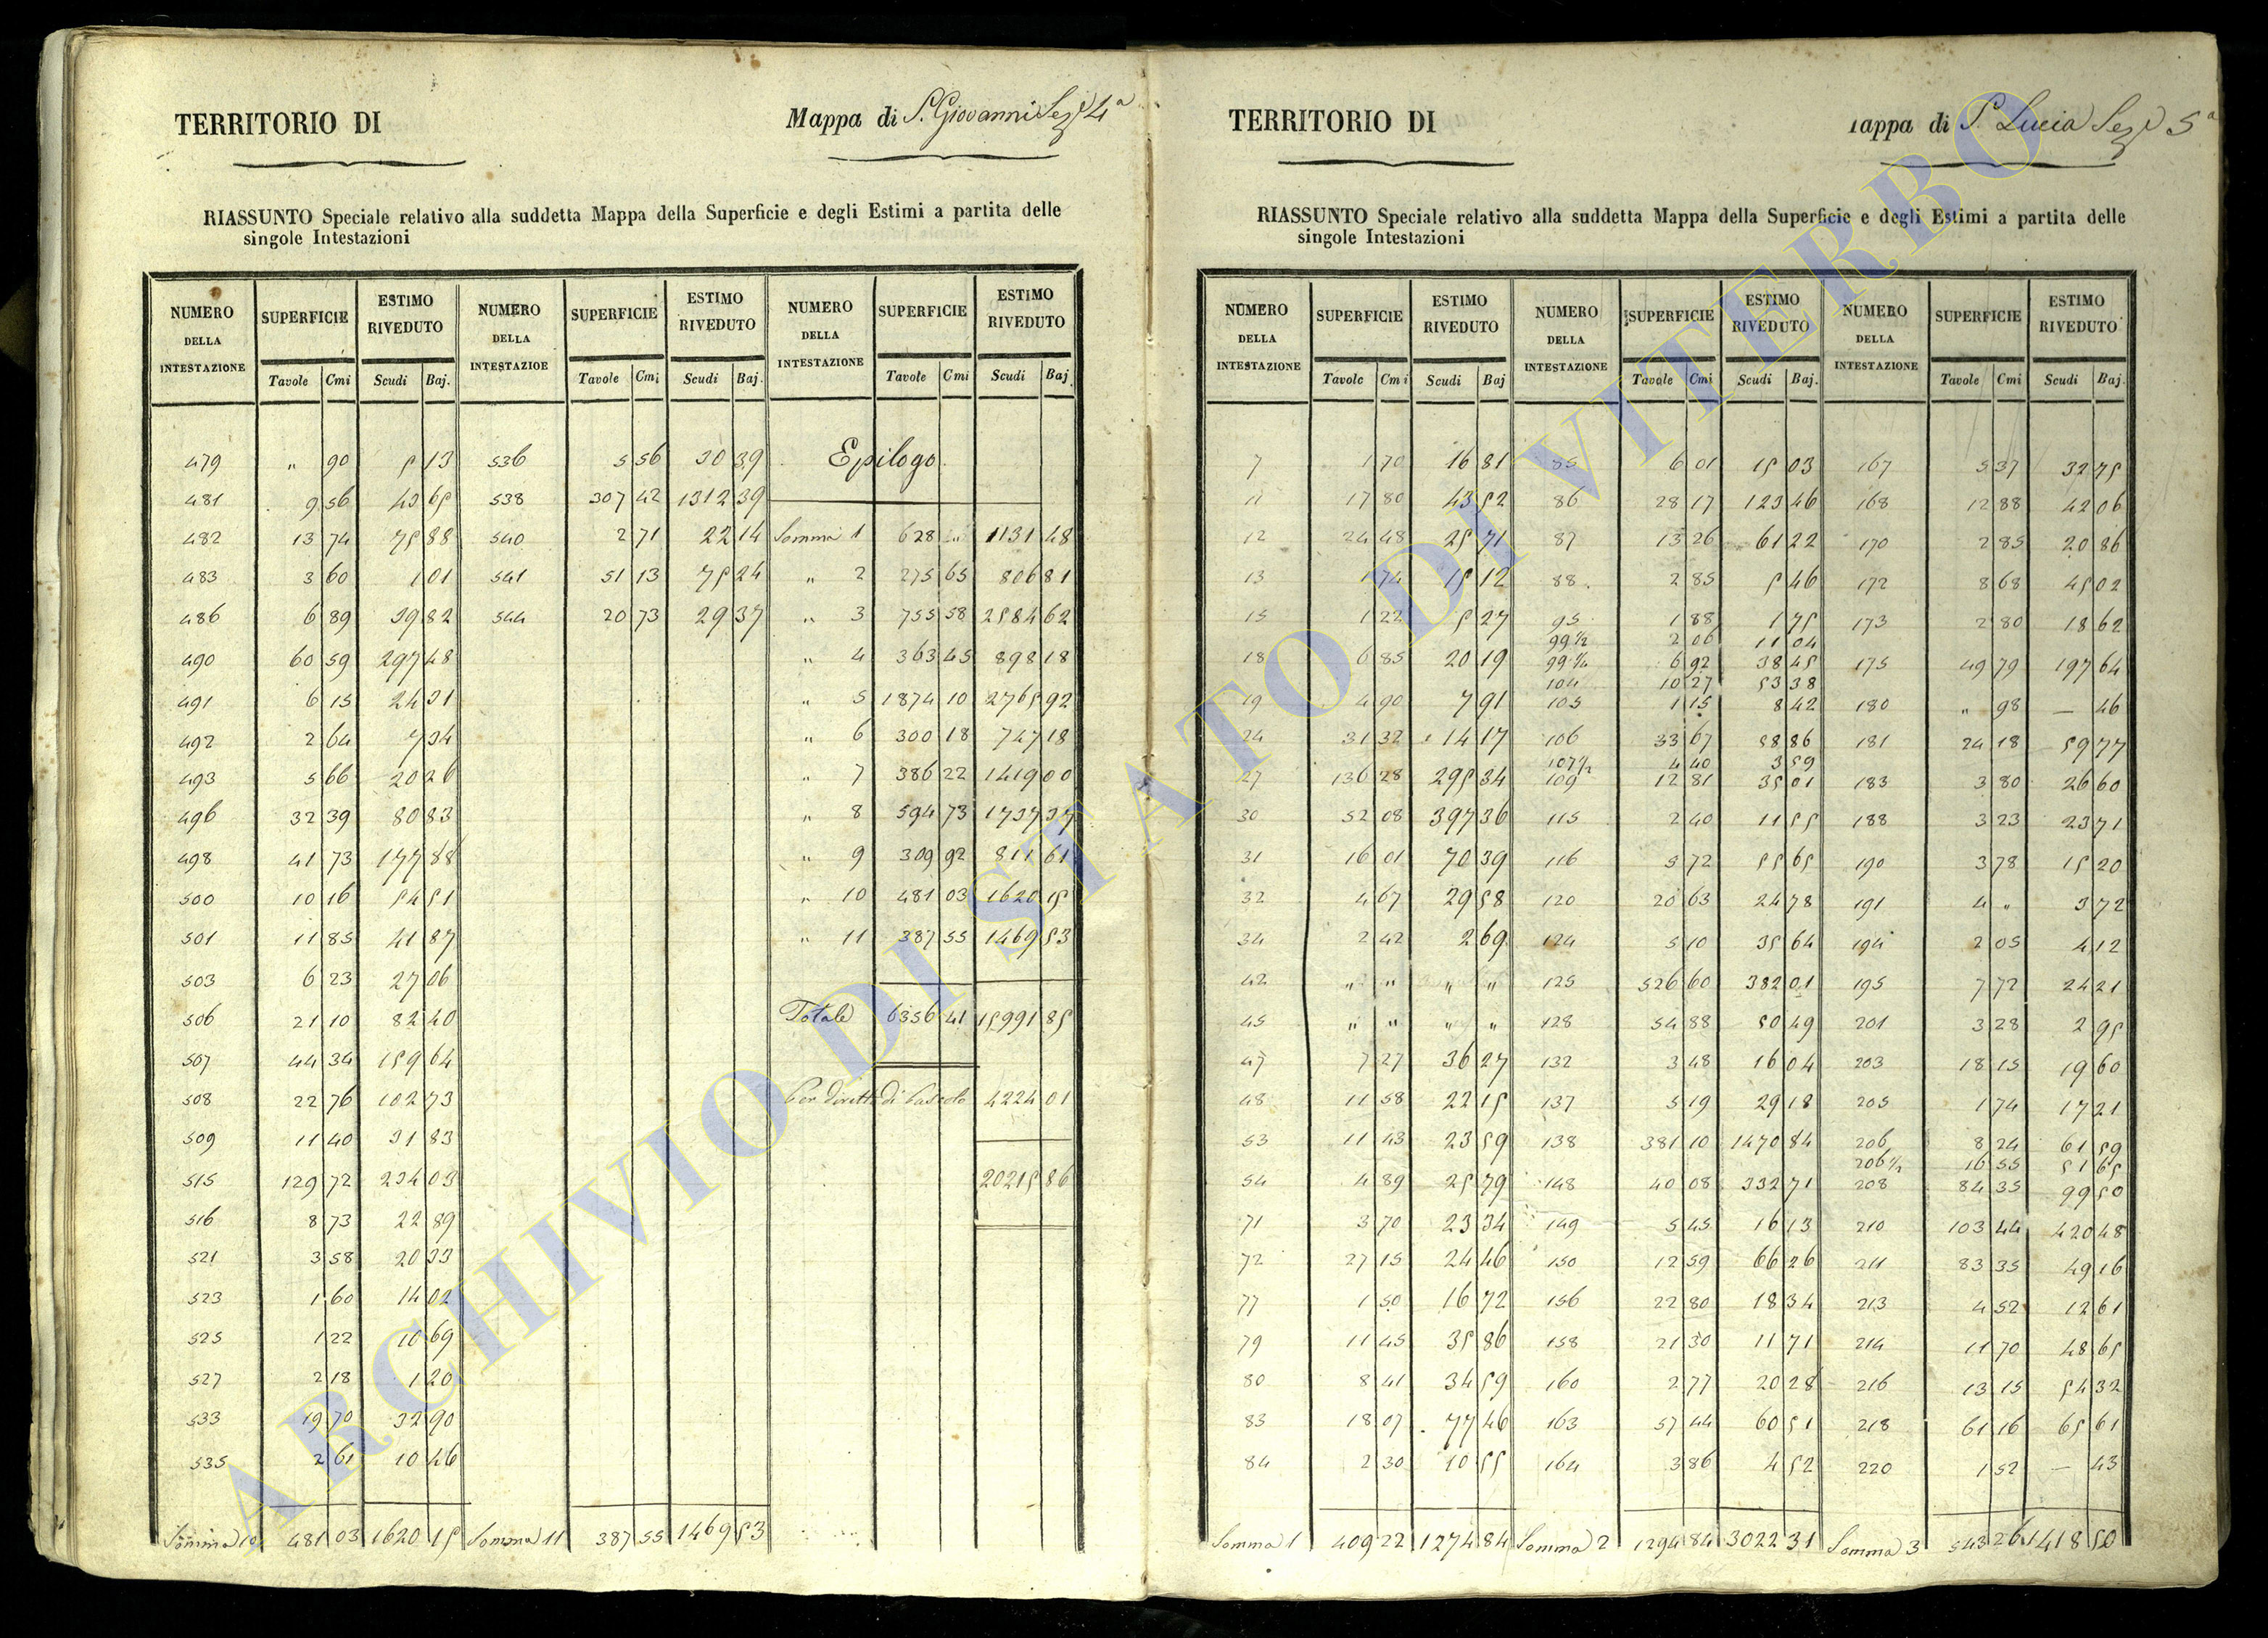 TERRITORIO DI
Mappa di S. Giovanni Sez.e 4a
RIASSUNTO Speciale relativo alla suddetta Mappa della Superficie e degli Estimi a partita delle
singole Intestazioni
NUMERO DELLA INTESTAZIONE | SUPERFICIE | ESTIMO RIVEDUTO | NUMERO DELLA INTESTAZIOE | SUPERFICIE | ESTIMO RIVEDUTO | NUMERO DELLA INTESTAZIONE | SUPERFICIE | ESTIMO RIVEDUTO
Tavole | Cmi | Scudi | Baj. | Tavole | Cmi | Scudi | Baj. | Tavole | Cmi | Scudi | Baj.
479 | " | 90 | 5 | 13 | 536 | 5 | 56 | 30 | 39 | Epilogo
481 | 9 | 56 | 43 | 65 | 538 | 307 | 42 | 1312 | 39
482 | 13 | 74 | 75 | 88 | 540 | 2 | 71 | 22 | 14 | Somma 1 | 628 | " | 1131 | 48
483 | 3 | 60 | 1 | 01 | 541 | 51 | 13 | 75 | 24 | " 2 | 275 | 65 | 806 | 81
486 | 6 | 89 | 39 | 82 | 544 | 20 | 73 | 29 | 37 | " 3 | 755 | 58 | 2584 | 62
490 | 60 | 59 | 297 | 48 | " 4 | 363 | 45 | 898 | 18
491 | 6 | 15 | 24 | 31 | " 5 | 1874 | 10 | 2765 | 92
492 | 2 | 64 | 7 | 34 | " 6 | 300 | 18 | 747 | 18
493 | 5 | 66 | 20 | 26 | " 7 | 386 | 22 | 1419 | 00
496 | 32 | 39 | 80 | 83 | " 8 | 594 | 73 | 1737 | 37
498 | 41 | 73 | 177 | 88 | " 9 | 309 | 92 | 811 | 61
500 | 10 | 16 | 54 | 51 | " 10 | 481 | 03 | 1620 | 15
501 | 11 | 85 | 41 | 87 | " 11 | 387 | 55 | 1469 | 53
503 | 6 | 23 | 27 | 06
506 | 21 | 10 | 82 | 40 | Totale | 6356 | 41 | 15991 | 85
507 | 44 | 34 | 159 | 64
508 | 22 | 76 | 102 | 73 | Per diritto di Pascolo | 4224 | 01
509 | 11 | 40 | 31 | 83
515 | 129 | 72 | 234 | 03 | 20215 | 86
516 | 8 | 73 | 22 | 89
521 | 3 | 58 | 20 | 33
523 | 1 | 60 | 14 | 02
525 | 1 | 22 | 10 | 69
527 | 2 | 18 | 1 | 20
533 | 19 | 70 | 32 | 90
535 | 2 | 61 | 10 | 46
Somma 10 | 481 | 03 | 1620 | 15 | Somma 11 | 387 | 55 | 1469 | 53
TERRITORIO DI
Mappa di S. Lucia Sez.e 5a
RIASSUNTO Speciale relativo alla suddetta Mappa della Superficie e degli Estimi a partita delle
singole Intestazioni
NUMERO DELLA INTESTAZIONE | SUPERFICIE | ESTIMO RIVEDUTO | NUMERO DELLA INTESTAZIONE | SUPERFICIE | ESTIMO RIVEDUTO | NUMERO DELLA INTESTAZIONE | SUPERFICIE | ESTIMO RIVEDUTO
Tavole | Cmi | Scudi | Baj | Tavole | Cmi | Scudi | Baj. | Tavole | Cmi | Scudi | Baj.
7 | 1 | 70 | 16 | 81 | 85 | 6 | 01 | 15 | 03 | 167 | 5 | 37 | 32 | 75
11 | 17 | 80 | 43 | 52 | 86 | 28 | 17 | 123 | 46 | 168 | 12 | 88 | 42 | 06
12 | 24 | 48 | 25 | 71 | 87 | 13 | 26 | 61 | 22 | 170 | 2 | 85 | 20 | 86
13 | 1 | 74 | 15 | 12 | 88 | 2 | 85 | 5 | 46 | 172 | 8 | 68 | 45 | 02
15 | 1 | 22 | 5 | 27 | 95 | 1 | 88 | 1 | 75 | 173 | 2 | 80 | 18 | 62
99 1/2 | 2 | 06 | 11 | 04
18 | 6 | 85 | 20 | 19 | 99 1/4 | 6 | 92 | 38 | 45 | 175 | 49 | 79 | 197 | 64
104 | 10 | 27 | 53 | 38
19 | 4 | 90 | 7 | 91 | 105 | 1 | 15 | 8 | 42 | 180 | " | 98 | — | 46
24 | 31 | 32 | 14 | 17 | 106 | 33 | 67 | 58 | 86 | 181 | 24 | 18 | 59 | 77
107 1/2 | 4 | 40 | 3 | 59
27 | 136 | 28 | 295 | 34 | 109 | 12 | 81 | 35 | 01 | 183 | 3 | 80 | 26 | 60
30 | 52 | 08 | 397 | 36 | 115 | 2 | 40 | 11 | 55 | 188 | 3 | 23 | 23 | 71
31 | 16 | 01 | 70 | 39 | 116 | 5 | 72 | 55 | 65 | 190 | 3 | 78 | 15 | 20
32 | 4 | 67 | 29 | 58 | 120 | 20 | 63 | 24 | 78 | 191 | 4 | " | 3 | 72
34 | 2 | 42 | 2 | 69 | 124 | 5 | 10 | 35 | 64 | 194 | 2 | 05 | 4 | 12
42 | " | " | " | " | 125 | 526 | 60 | 382 | 01 | 195 | 7 | 72 | 24 | 21
45 | " | " | " | " | 128 | 54 | 88 | 50 | 49 | 201 | 3 | 28 | 2 | 95
47 | 7 | 27 | 36 | 27 | 132 | 3 | 48 | 16 | 04 | 203 | 18 | 15 | 19 | 60
48 | 11 | 58 | 22 | 15 | 137 | 5 | 19 | 29 | 18 | 205 | 1 | 74 | 17 | 21
53 | 11 | 43 | 23 | 59 | 138 | 381 | 10 | 1470 | 84 | 206 | 8 | 24 | 61 | 59
206 1/2 | 16 | 55 | 51 | 65
54 | 4 | 89 | 25 | 79 | 148 | 40 | 08 | 332 | 71 | 208 | 84 | 35 | 99 | 50
71 | 3 | 70 | 23 | 34 | 149 | 5 | 45 | 16 | 13 | 210 | 103 | 44 | 420 | 48
72 | 27 | 15 | 24 | 46 | 150 | 12 | 59 | 66 | 26 | 211 | 83 | 35 | 49 | 16
77 | 1 | 50 | 16 | 72 | 156 | 22 | 80 | 18 | 34 | 213 | 4 | 52 | 12 | 61
79 | 11 | 45 | 35 | 86 | 158 | 21 | 30 | 11 | 71 | 214 | 11 | 70 | 48 | 65
80 | 8 | 41 | 34 | 59 | 160 | 2 | 77 | 20 | 28 | 216 | 13 | 15 | 54 | 32
83 | 18 | 07 | 77 | 46 | 163 | 57 | 44 | 60 | 51 | 218 | 61 | 16 | 65 | 61
84 | 2 | 30 | 10 | 55 | 164 | 3 | 86 | 4 | 52 | 220 | 1 | 52 | — | 43
Somma 1 | 409 | 22 | 1274 | 84 | Somma 2 | 1294 | 84 | 3022 | 31 | Somma 3 | 543 | 26 | 1418 | 50
ARCHIVIO DI STATO DI VITERBO